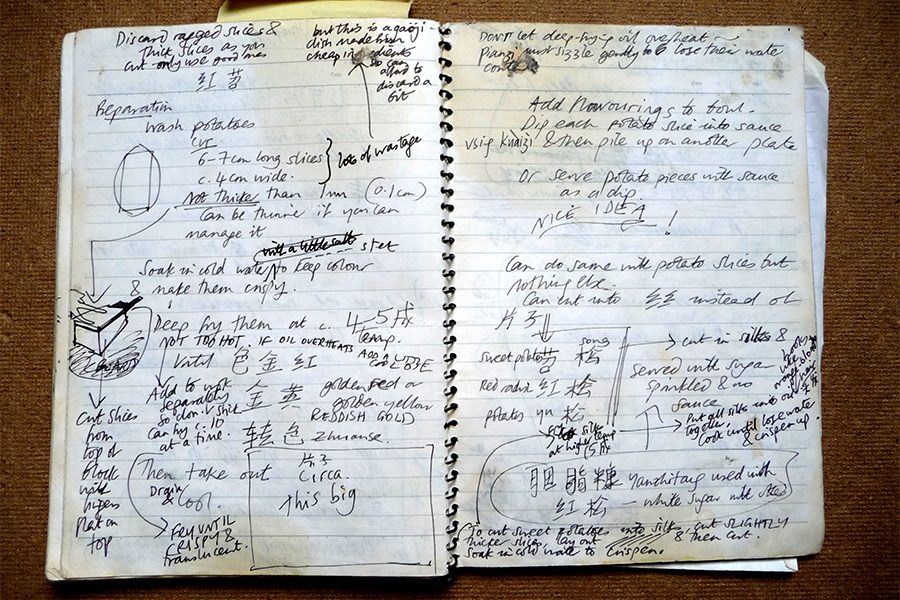 Discard ragged slices &
thick slices as you
cut – only use good ones
but this is a gaoji
dish made from
cheap ingredients
so can
afford to
discard a
bit
红苕
Preparation
wash potatoes
cut
6-7cm long slices
c. 4cm wide.
lots of wastage
Not thicker than 1mm (0.1cm)
Can be thinner if you can
manage it
with a little salt stet
Soak in cold water to keep colour
& make them crispy.
Deep fry them at c. 4-5成
NOT TOO HOT. IF OIL OVERHEATS
ADD A
Until 色金红
Add to wok
separately
so don't stick
can fry c. 10
at a time.
金黄
golden red or
golden yellow
REDDISH GOLD
转色 zhuanse.
Cut slices
from
top of
block
with
knife
flat on
top
Then take out
Drain
& cool
FRY UNTIL
CRISPY &
translucent.
片子
Circa
this big
Don't let deep-frying oil overheat –
pianzi must sizzle gently to lose their water
content
Add flavourings to bowl.
Dip each potato slice into sauce
using kuaizi & then pile up on another plate
Or serve potato pieces with sauce
as a dip
NICE IDEA!
Can do same with potato slices but
nothing else.
Can cut into 丝 instead of
片子
sweet potato 苕松
song
red radish 红松
potatoes yu 松
cut in silks &
served with sugar
sprinkled & no
sauce
Put all silks into oil
together.
Cook until lose water
& crispen up.
at higher temp
胭脂糖 yanzhitang used with
红松 – white sugar with
To cut sweet potatoes into silk, cut SLIGHTLY
thicker slices, lay out & then cut.
Soak in cold water to crispen.